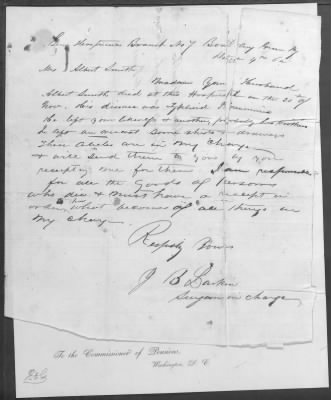 Hospital Branch No 7 Bowling Green Ky
9th 62
Mrs. Albert Smith,
Madam Your Husband
Albert Smith died at this Hospital on the 20 of
Nov. His disease was Typhoid Pneumonia
He left your & another, probably his brothers
I left an some shirts & drawers
These articles are in My charge
& will send them to you by your
receipting me for them I am responsible
for all the Goods of persons
who die & must have a receipt in
order what becomes of all things in
My charge
Respctfy Yours
J B Larkin
Surgeon in Charge
To the Commissioner of Pensions,
Washington, D. C.